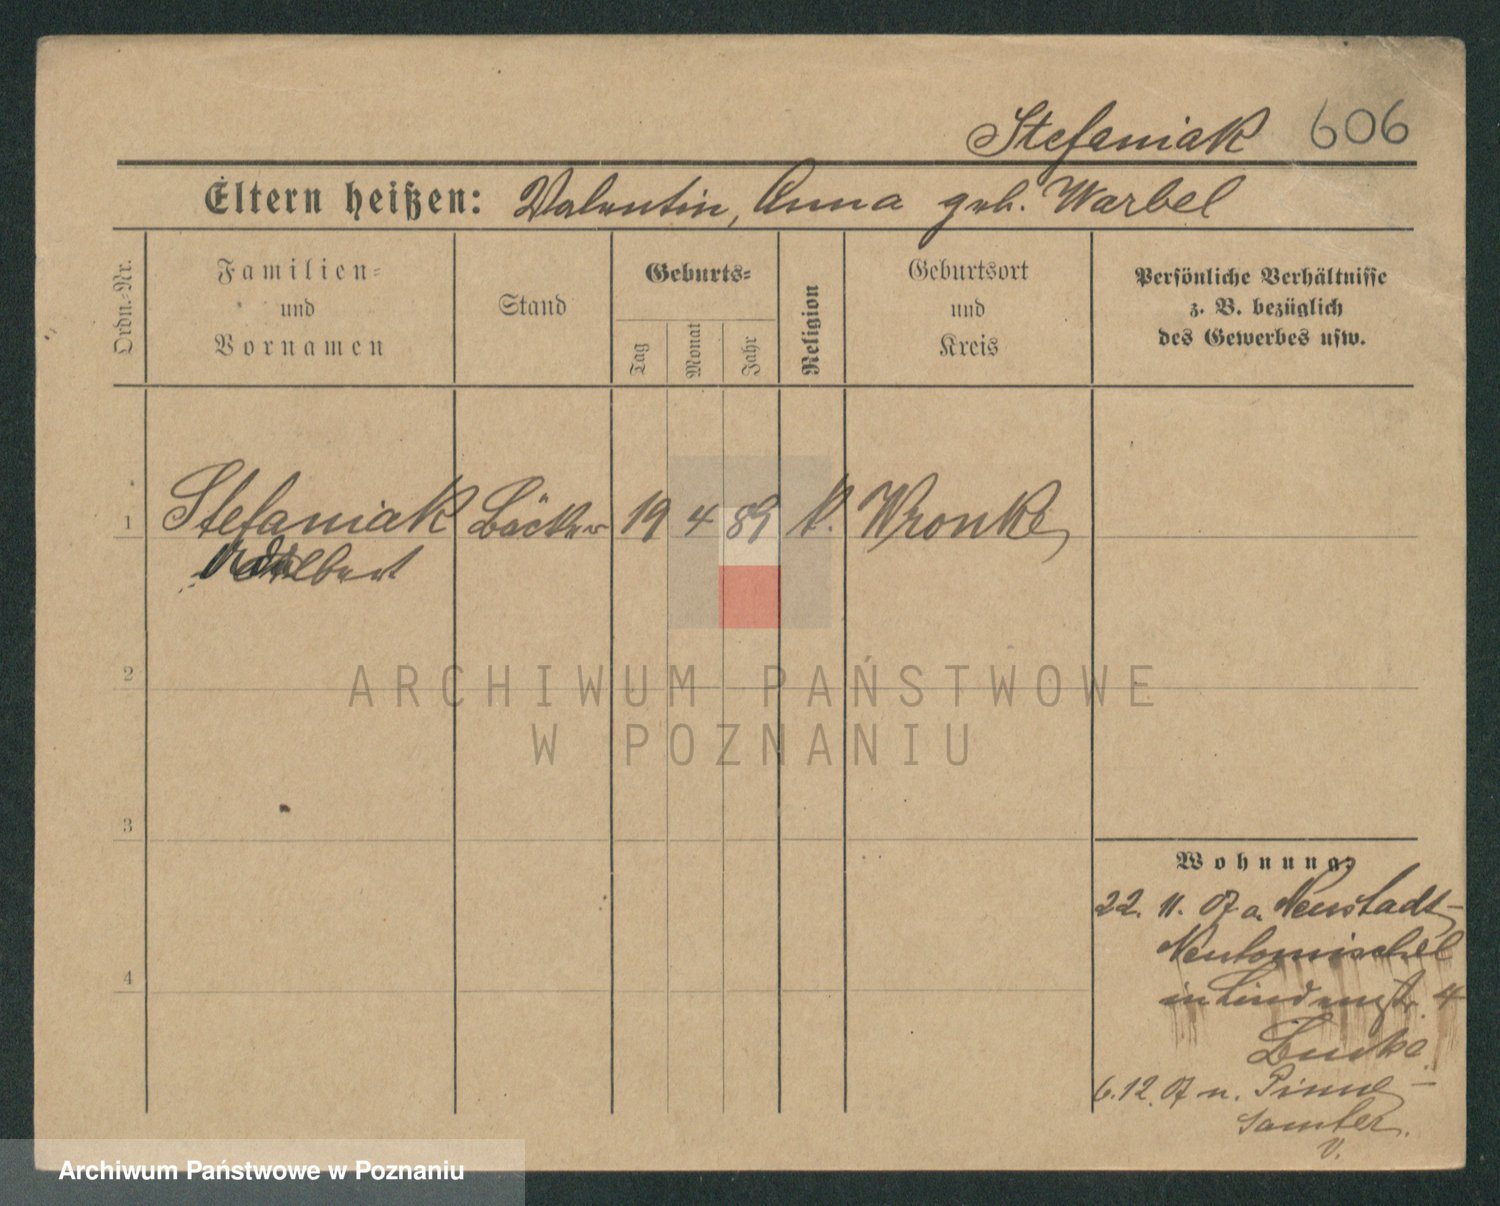 Stefaniak 606
Eltern heißen: Valentin, Anna geb. Warbel
Ordn.-Nr.
Familien-
und
Vornamen
Stand
Geburts-
Tag
Monat
Jahr
Religion
Geburtsort
und
Kreis
Persönliche Verhältnisse
z. B. bezüglich
des Gewerbes usw.
1 Stefaniak Bäcker 19 4 89 k. Wronke
2
3
4
ARCHIWUM PAŃSTWOWE
W POZNANIU
Wohnung
22. 11. 07 a. Neustadt-
Neutomischel
in Lindenstr. 4
6. 12. 07 n. Pinne-
Samter.
V.
Archiwum Państwowe w Poznaniu